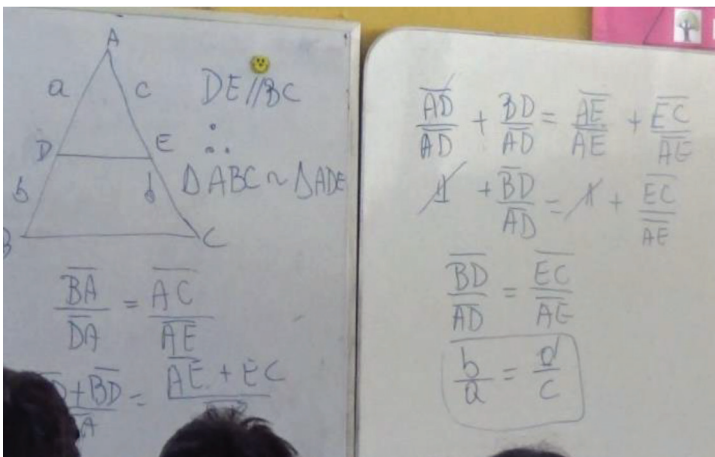 A
a c
DE//BC
D E
∴
b d
ΔABC ~ ΔADE
B C
BA/DA = AC/AE
+BD/A = AE + EC
AD/AD + BD/AD = AE/AE + EC/AE
1 + BD/AD = 1 + EC/AE
BD/AD = EC/AE
b/a = d/c